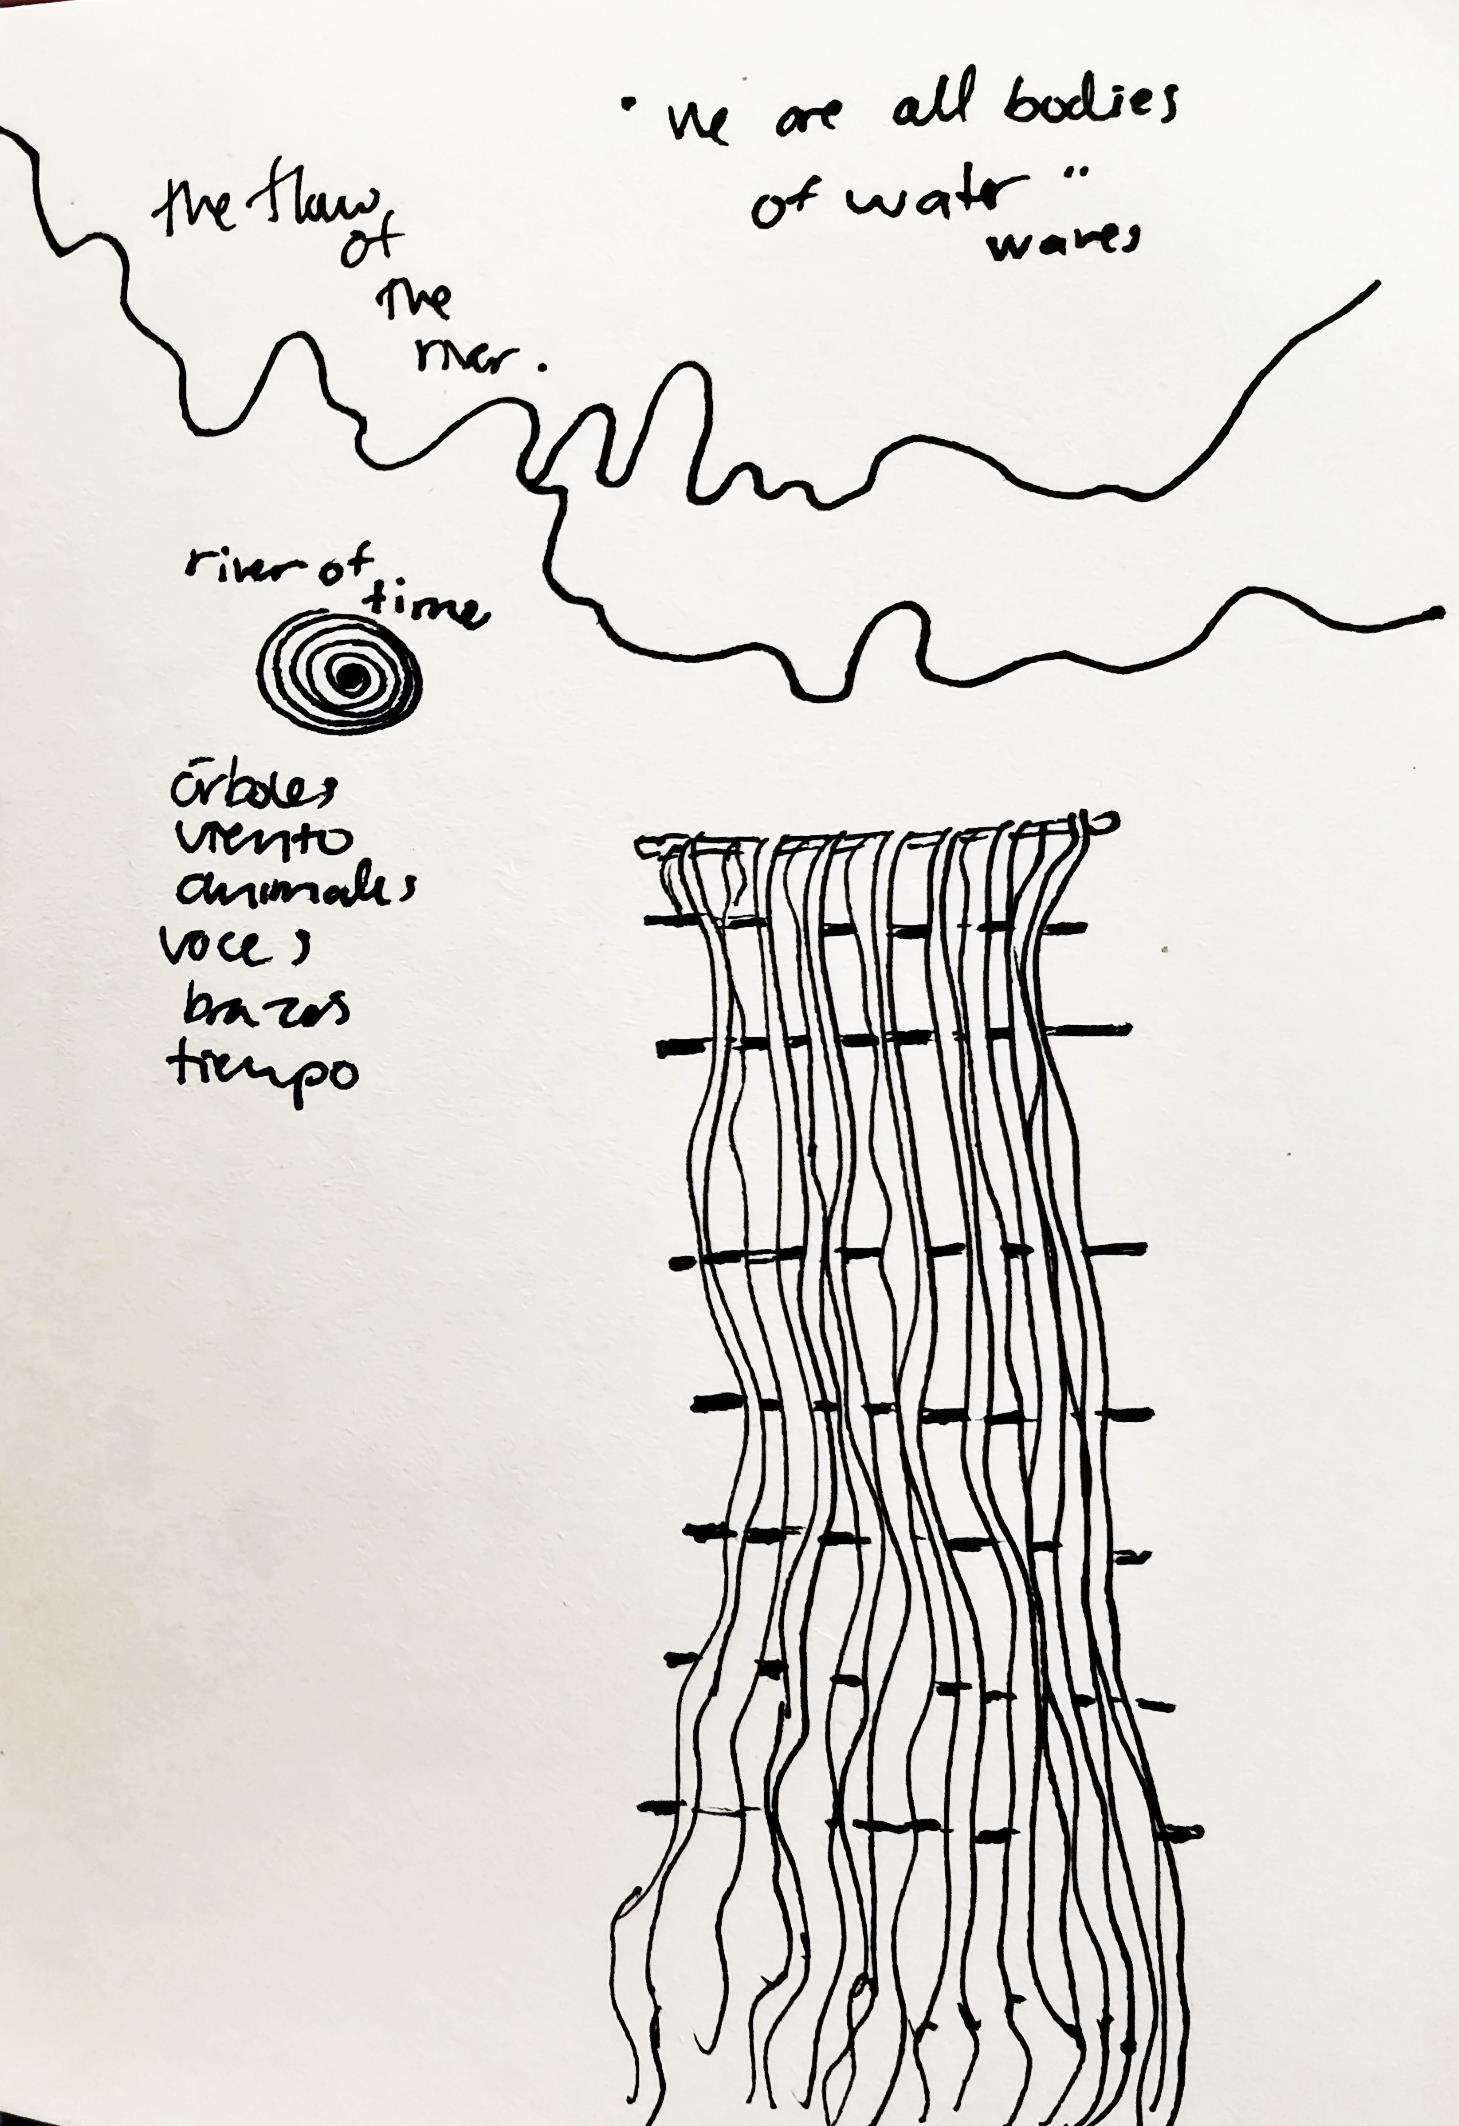 "We are all bodies
of water"
waves
the flow
of
the
river.
river of
time
árboles
viento
animales
voces
brazos
tiempo